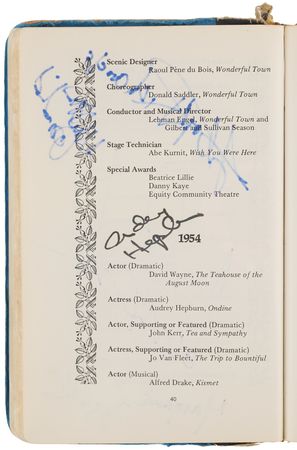 Scenic Designer
Raoul Pène du Bois, Wonderful Town
Choreographer
Donald Saddler, Wonderful Town
Conductor and Musical Director
Lehman Engel, Wonderful Town and
Gilbert and Sullivan Season
Stage Technician
Abe Kurnit, Wish You Were Here
Special Awards
Beatrice Lillie
Danny Kaye
Equity Community Theatre
Audrey
Hepburn
1954
Actor (Dramatic)
David Wayne, The Teahouse of the
August Moon
Actress (Dramatic)
Audrey Hepburn, Ondine
Actor, Supporting or Featured (Dramatic)
John Kerr, Tea and Sympathy
Actress, Supporting or Featured (Dramatic)
Jo Van Fleet, The Trip to Bountiful
Actor (Musical)
Alfred Drake, Kismet
40